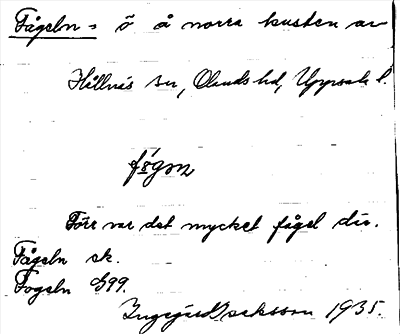 Fågeln = ö å norra kusten av
Hållnäs sn, Olands hd, Uppsala l.
Förr var det mycket fågel där.
Fågeln sk.
Fogeln G99.
Ingegärd Jakobsson 1935.